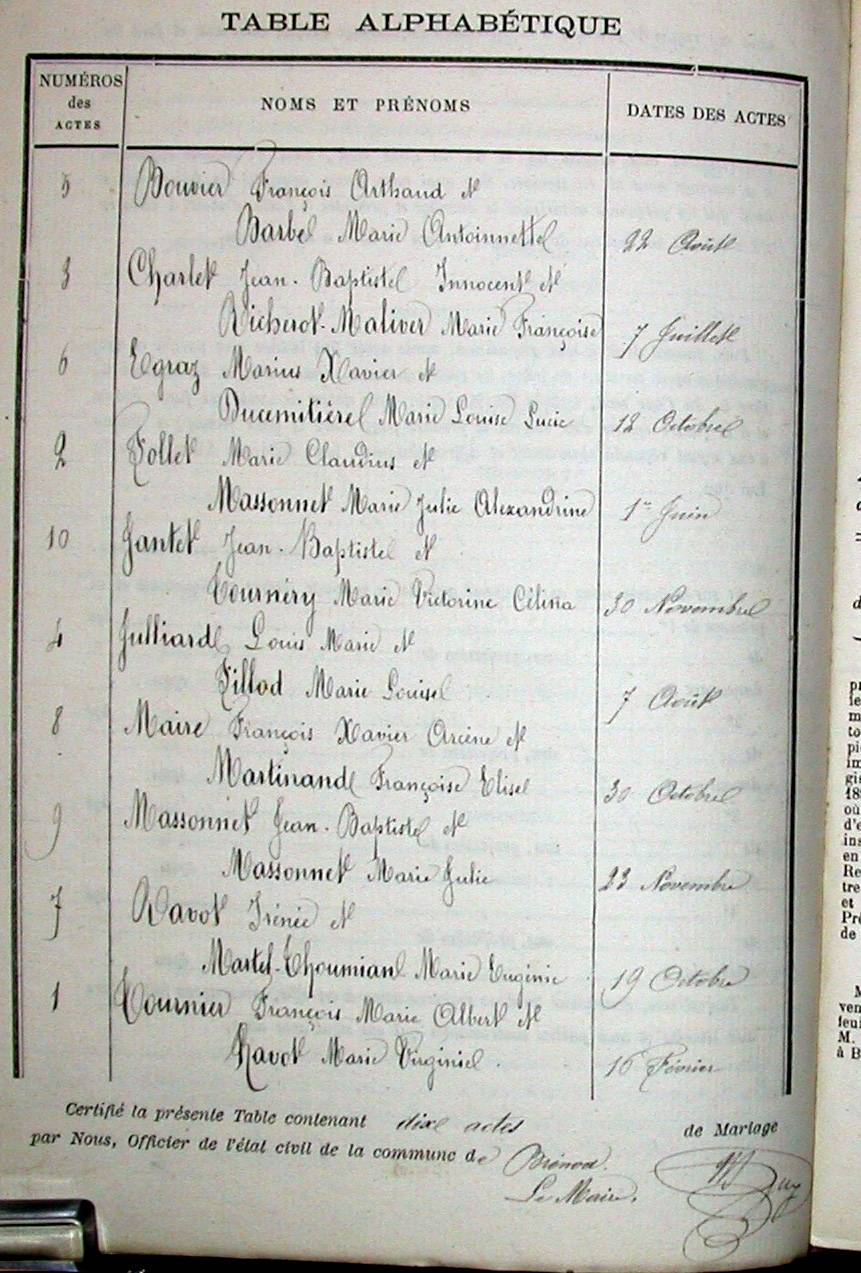 TABLE ALPHABÉTIQUE
NUMÉROS des ACTES NOMS ET PRÉNOMS DATES DES ACTES
5 Bouvier François Arthaud et
Barbe Marie Antoinnette 22 Août
3 Charlet Jean-Baptiste Innocent et
Richerot-Maliver Marie Françoise 7 Juillet
6 Egraz Marius Xavier et
Ducimitière Marie Louise Lucie 12 Octobre
2 Follet Marie Claudius et
Massonnet Marie Julie Alexandrine 1er Juin
10 Jantet Jean-Baptiste et
Tournéry Marie Victorine Célina 30 Novembre
4 Julliard Louis Marie et
Fillod Marie Louise 7 Août
8 Maire François Xavier Arcène et
Martinand Françoise Elise 30 Octobre
9 Massonnet Jean-Baptiste et
Massonnet Marie Julie 23 Novembre
7 Ravot Irénée et
Martel-Thoumian Marie Eugénie 19 Octobre
1 Tournier François Marie Albert et
Ravot Marie Virginie 16 Février
Certifié la présente Table contenant dix actes de Mariage
par Nous, Officier de l'état civil de la commune de Brénod.
Le Maire,